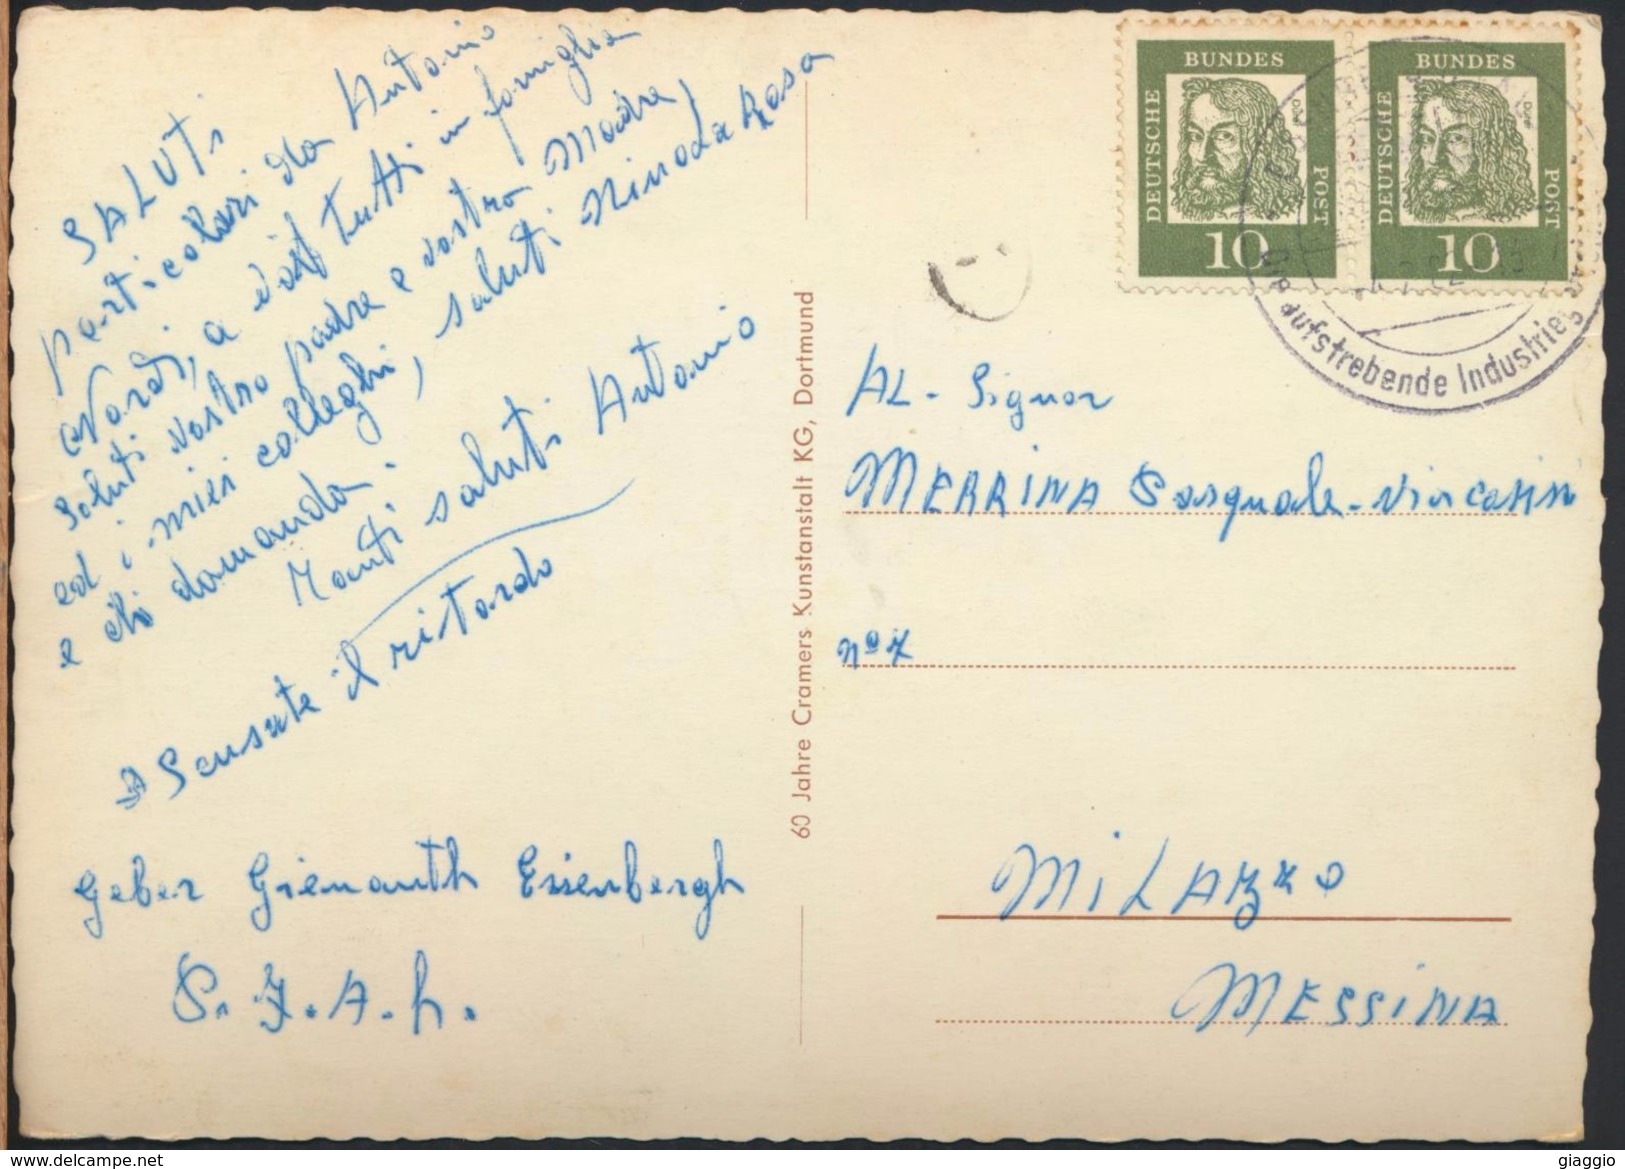 SALUTi
particolari da Antonio
a voi tutti in famiglia
saluti vostro padre e vostra madre,
ed i miei colleghi, saluti Nino La Rosa
e chi domanda.
Tanti saluti Antonio
Scusate il ritardo
Geber Griemauth Eisenbergh
S. J. A. h.
60 Jahre Cramers Kunstanstalt KG, Dortmund
DEUTSCHE BUNDES POST
10
DEUTSCHE BUNDES POST
10
Die aufstrebende Industrie
AL - Signor
MERRINA Pasquale - Via
nº 7
MiLAZZO
MESSiNA
giaggio